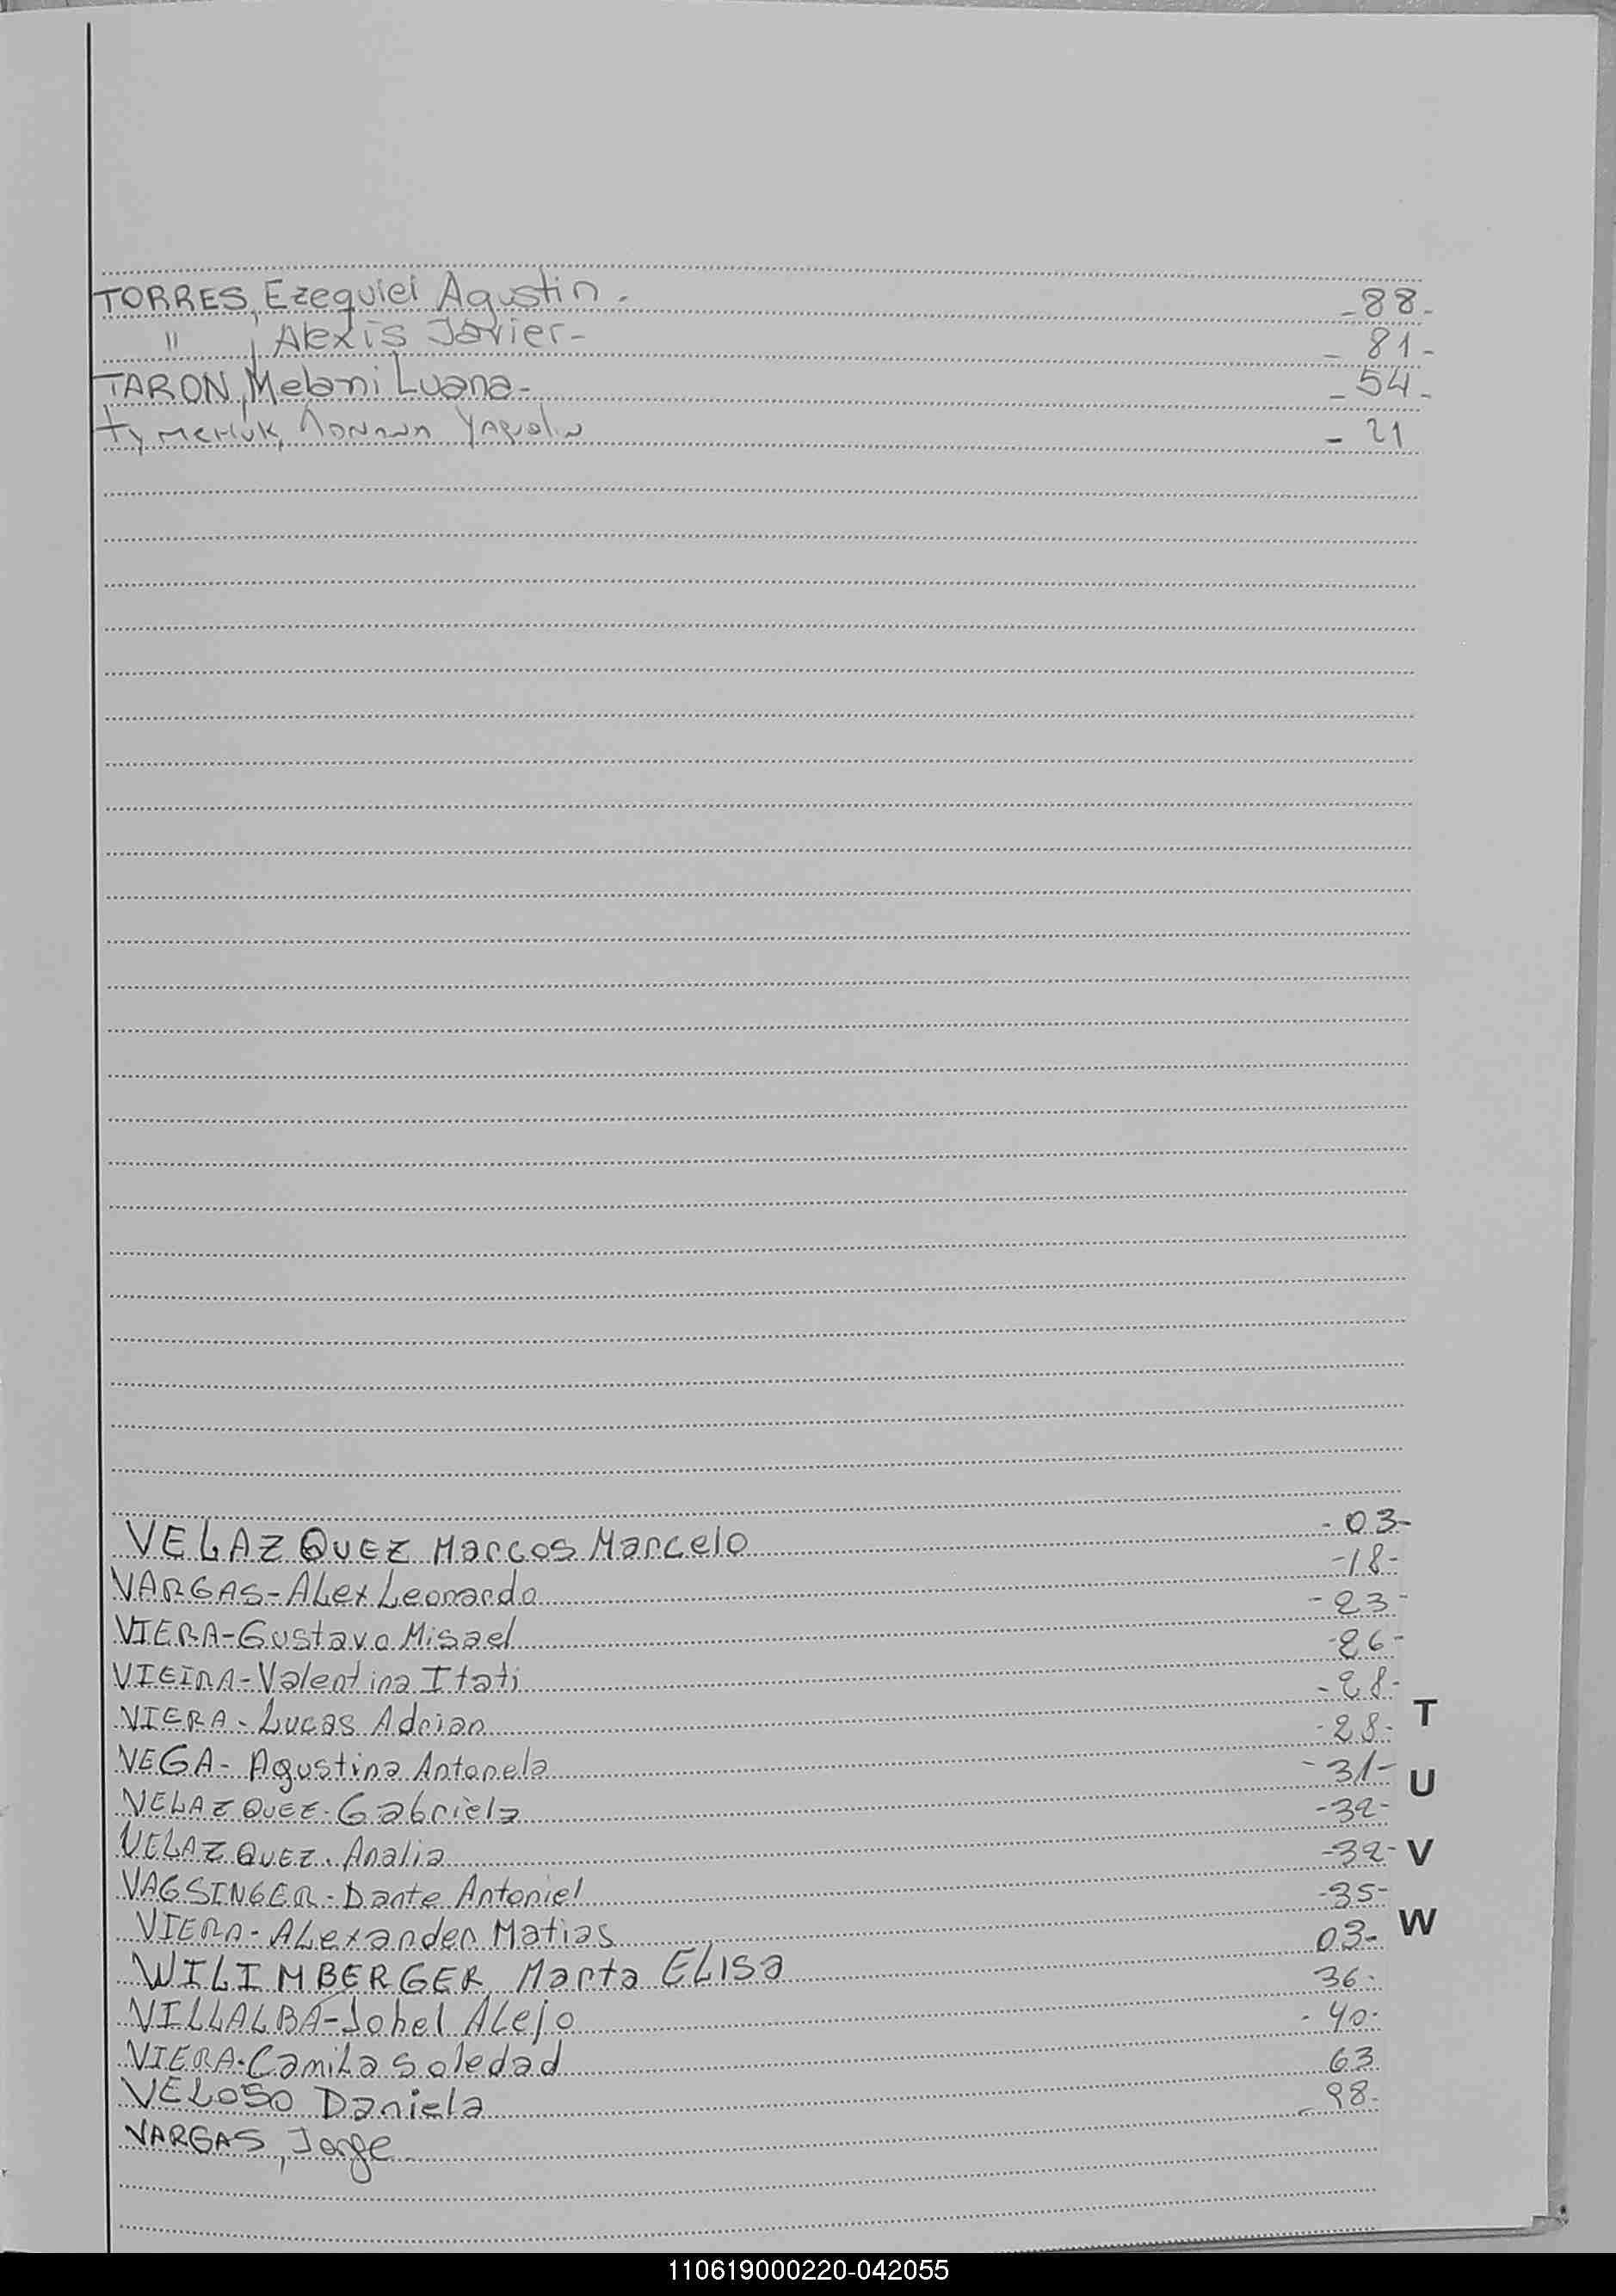 TORRES, Ezequiel Agustin - -88-
" , Alexis Javier - - 81-
TARON, Melani Luana - - 54 -
Tymchuk, - 21
VELAZQUEZ Marcos Marcelo - 03-
VARGAS - ALex Leonardo -18-
VIERA - Gustavo Misael - 23 -
VIEIRA - Valentina Itati -26-
VIERA - Lucas Adrian - 28-
VEGA - Agustina Antonela - 28-
VELAZQUEZ - Gabriela - 31-
VELAZQUEZ - Analia -32-
VAGSINGER - Dante Antoniel -32-
VIERA - ALexander Matias -35-
WILIMBERGER Marta ELisa 03-
VILLALBA - Johel ALejo 36-
VIERA - CamiLa Soledad - 40-
VELOSO Daniela 63
VARGAS, Jorge - - 98-
T
U
V
W
110619000220-042055